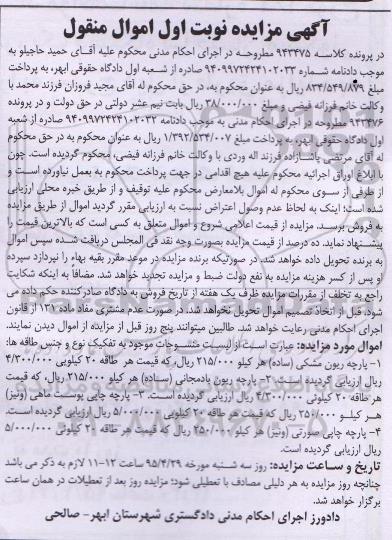 آگهی مزایده نوبت اول اموال منقول
در پرونده کلاسه ۹۴۳۴۷۵ مطروحه در اجرای احکام مدنی محکوم علیه آقای حمید حاجیلو به
موجب دادنامه شماره ۹۴۰۹۹۷۲۴۲۴۱۰۲۰۳۳ صادره از شعبه اول دادگاه حقوقی ابهر، به پرداخت
مبلغ ۸۳۴/۵۴۹/۸۷۹ ریال به عنوان محکوم به، در حق محکوم له آقای مجید فروزان فرزند محمد با
وکالت خانم فرزانه فیضی و مبلغ ۳۸/۰۰۰/۰۰۰ ریال بابت نیم عشر دولتی در حق دولت و در پرونده
۹۴۳۴۷۶ مطروحه در اجرای احکام مدنی به موجب دادنامه ۹۴۰۹۹۷۲۴۲۴۱۰۲۰۳۲ صادره از شعبه
اول دادگاه حقوقی ابهر، به پرداخت مبلغ ۱/۳۹۲/۵۳۴/۰۰۷ ریال به عنوان محکوم به در حق محکوم
له آقای مرتضی پاشازاده فرزند اله وردی با وکالت خانم فرزانه فیضی، محکوم گردیده است. چون
با ابلاغ اوراق اجرائیه محکوم علیه هیچ اقدامی در جهت پرداخت محکوم به بعمل نیاورده است و
از طرفی از سوی محکوم له اموال بلامعارض محکوم علیه توقیف و از طریق خبره محلی ارزیابی
شده است؛ اینک به لحاظ عدم وصول اعتراض نسبت به ارزیابی مقرر گردید اموال از طریق مزایده
به فروش برسد. مزایده از قیمت اعلامی شروع و اموال متعلق به کسی است که بالاترین قیمت را
پیشنهاد نماید. ده درصد از قیمت مزایده بصورت وجه نقد فی المجلس دریافت شده سپس اموال
به برنده تحویل داده خواهد شد. در صورتیکه برنده مزایده در موعد مقرر بقیه بهاء را نپردازد سپرده
و پس از کسر هزینه مزایده به نفع دولت ضبط و مزایده تجدید خواهد شد. مضافا به اینکه شکایت
راجع به تخلف از مقررات مزایده ظرف یک هفته از تاریخ فروش به دادگاه صادرکننده حکم داده می
شود. قبل از اتخاذ تصمیم اموال تحویل نخواهد شد. در صورت عدم مشتری مفاد ماده ۱۳۱ از قانون
اجرای احکام مدنی رعایت خواهد شد. طالبین میتوانند پنج روز قبل از مزایده از اموال دیدن نمایند.
اموال مورد مزایده: عبارت است از لیست منسوجات موجود به تفکیک نوع و جنس طاقه ها:
۱- پارچه ریون مشکی (ساده) هر کیلو ۲۱۵/۰۰۰ ریال، که قیمت هر طاقه ۲۰ کیلویی ۴/۳۰۰/۰۰۰
ریال ارزیابی گردیده است. ۲- پارچه ریون بادمجانی (ساده) هر کیلو ۲۱۵/۰۰۰ ریال، که قیمت
هر طاقه ۲۰ کیلوئی ۴/۳۰۰/۰۰۰ ریال ارزیابی گردیده است. ۳- پارچه چاپی پوست ماهی (ونیز)
هر کیلو ۲۵۰/۰۰۰ ریال که قیمت هر طاقه ۲۰ کیلویی ۵/۰۰۰/۰۰۰ ریال ارزیابی گردیده است.
۴- پارچه چاپی صورتی (ونیز) هر کیلو ۲۵۰/۰۰۰ ریال که قیمت هر طاقه ۲۰ کیلوئی ۵/۰۰۰/۰۰۰
ریال ارزیابی گردیده است.
تاریخ و ساعت مزایده: روز سه شنبه مورخه ۹۵/۴/۲۹ ساعت ۱۲-۱۱ لازم به ذکر می باشد
چنانچه روز مزایده به هر دلیلی مصادف با تعطیلی شود؛ مزایده روز بعد از تعطیلات در همان ساعت
برگزار خواهد شد.
دادورز اجرای احکام مدنی دادگستری شهرستان ابهر- صالحی